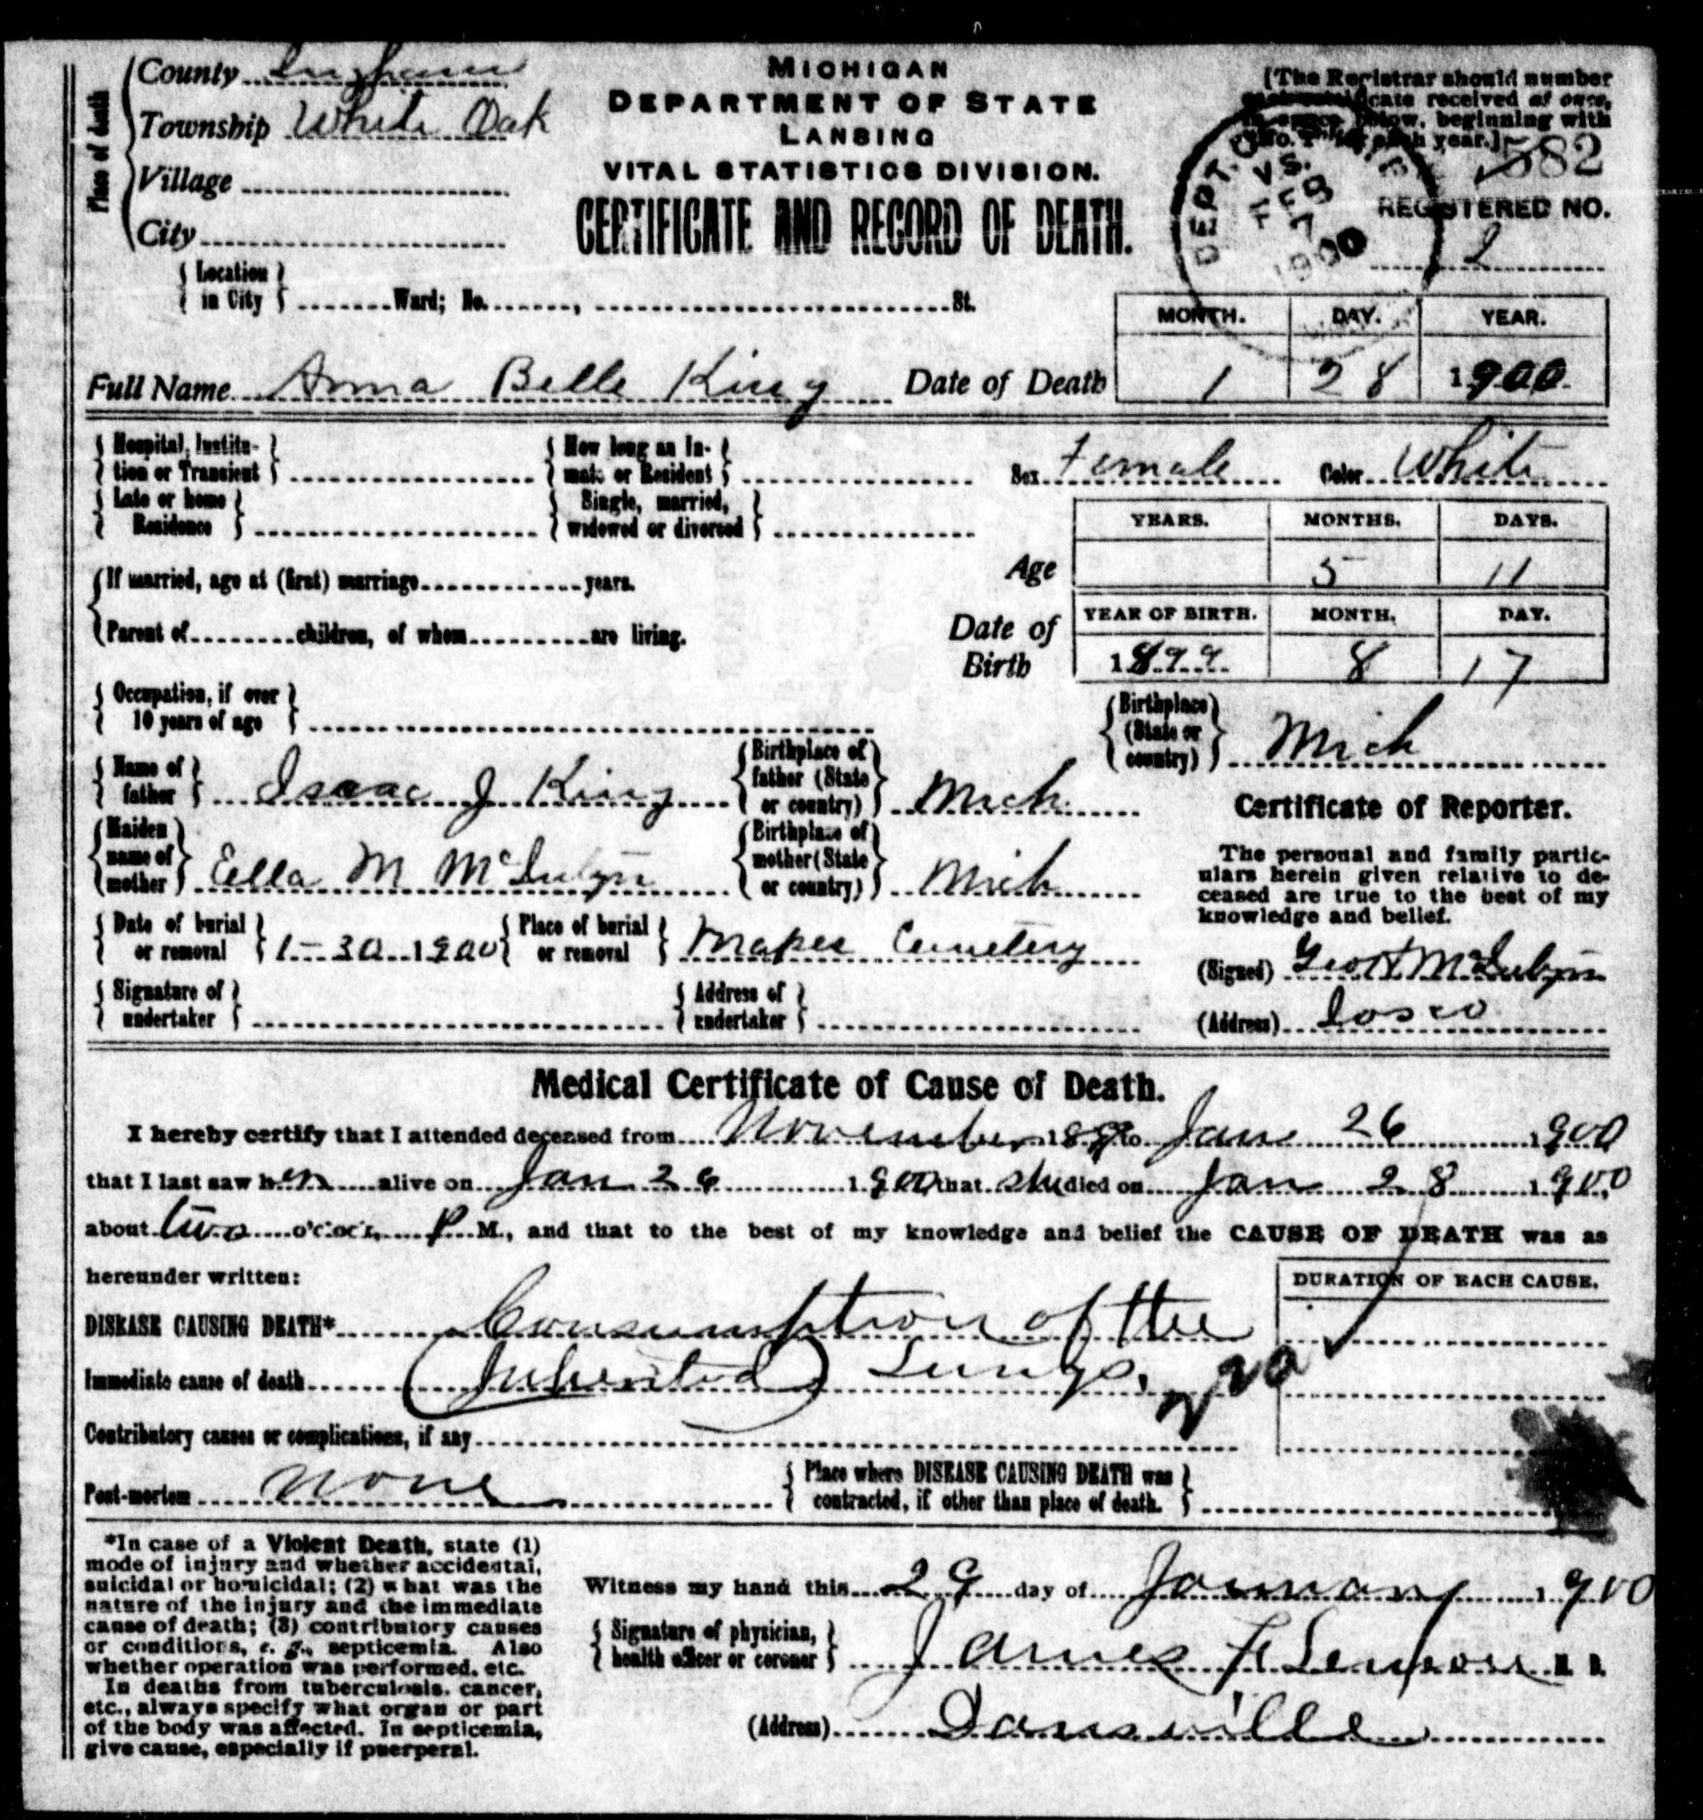 Place of death
County Ingham
Township White Oak
Village
City
MICHIGAN
DEPARTMENT OF STATE
LANSING
VITAL STATISTICS DIVISION.
CERTIFICATE AND RECORD OF DEATH.
[The Registrar should number
cate received at once,
below, beginning with
No. 1 for each year.]
582
REGISTERED NO.
2
DEPT. OF STATE
V.S.
FEB
7
1900
Location in City Ward; No. , St.
MONTH. DAY. YEAR.
Full Name Anna Belle King Date of Death 1 28 1900
Hospital, Institution or Transient How long an Inmate or Resident Sex Female Color White
Late or home Residence Single, married, widowed or divorced
YEARS. MONTHS. DAYS.
Age 5 11
If married, age at (first) marriage years.
Parent of children, of whom are living.
YEAR OF BIRTH. MONTH. DAY.
Date of Birth 1899 8 17
Occupation, if over 10 years of age
Birthplace (State or country) Mich
Name of father Isaac J King Birthplace of father (State or country) Mich
Maiden name of mother Ella M Birthplace of mother (State or country) Mich
Date of burial or removal 1-30 1900 Place of burial or removal Mapes Cemetery
Signature of undertaker Address of undertaker
Certificate of Reporter.
The personal and family partic-
ulars herein given relative to de-
ceased are true to the best of my
knowledge and belief.
(Signed) Geo
(Address) Iosco
Medical Certificate of Cause of Death.
I hereby certify that I attended deceased from November 189 to Jan 26 1900
that I last saw her alive on Jan 26 1900 that she died on Jan 28 1900,
about two o'clock, P. M., and that to the best of my knowledge and belief the CAUSE OF DEATH was as
hereunder written:
DURATION OF EACH CAUSE.
DISEASE CAUSING DEATH* Consumption of the
Immediate cause of death (Inherited) Lungs,
Contributory causes or complications, if any
Post-mortem None Place where DISEASE CAUSING DEATH was contracted, if other than place of death.
*In case of a Violent Death, state (1)
mode of injury and whether accidental,
suicidal or homicidal; (2) what was the
nature of the injury and the immediate
cause of death; (3) contributory causes
or conditions, e. g., septicemia. Also
whether operation was performed, etc.
In deaths from tuberculosis, cancer,
etc., always specify what organ or part
of the body was affected. In septicemia,
give cause, especially if puerperal.
Witness my hand this 29 day of January 1900
Signature of physician, health officer or coroner James M. D.
(Address) Dansville